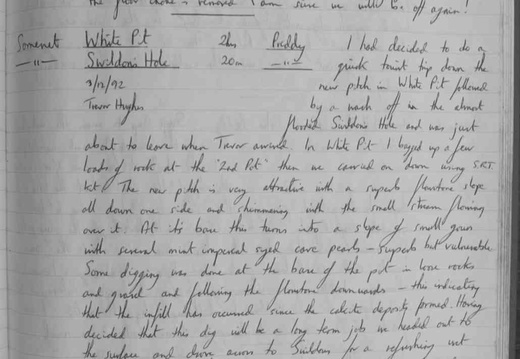 the first choke is removed I am sure we will be off again!
Somerset White Pit 2hrs Priddy I had decided to do a
—"— Swildons Hole 20m —"— quick tourist trip down the
3/12/92 new pitch in White Pit followed
Trevor Hughes by a wash off in the almost
flooded Swildons Hole and was just
about to leave when Trevor arrived. In White Pit I bagged up a few
loads of rock at the "2nd Pot" then we carried on down using S.R.T.
kit. The new pitch is very attractive with a superb flowstone slope
all down one side and shimmering with the small stream flowing
over it. At its base this turns into a slope of small gours
with several mint imperial sized cave pearls - superb but vulnerable
Some digging was done at the base of the pit in loose rocks
and gravel and following the flowstone downwards - this indicating
that the infill has occurred since the calcite deposits formed. Having
decided that this dig will be a long term job we headed out to
the surface and drove across to Swildons for a refreshing wet